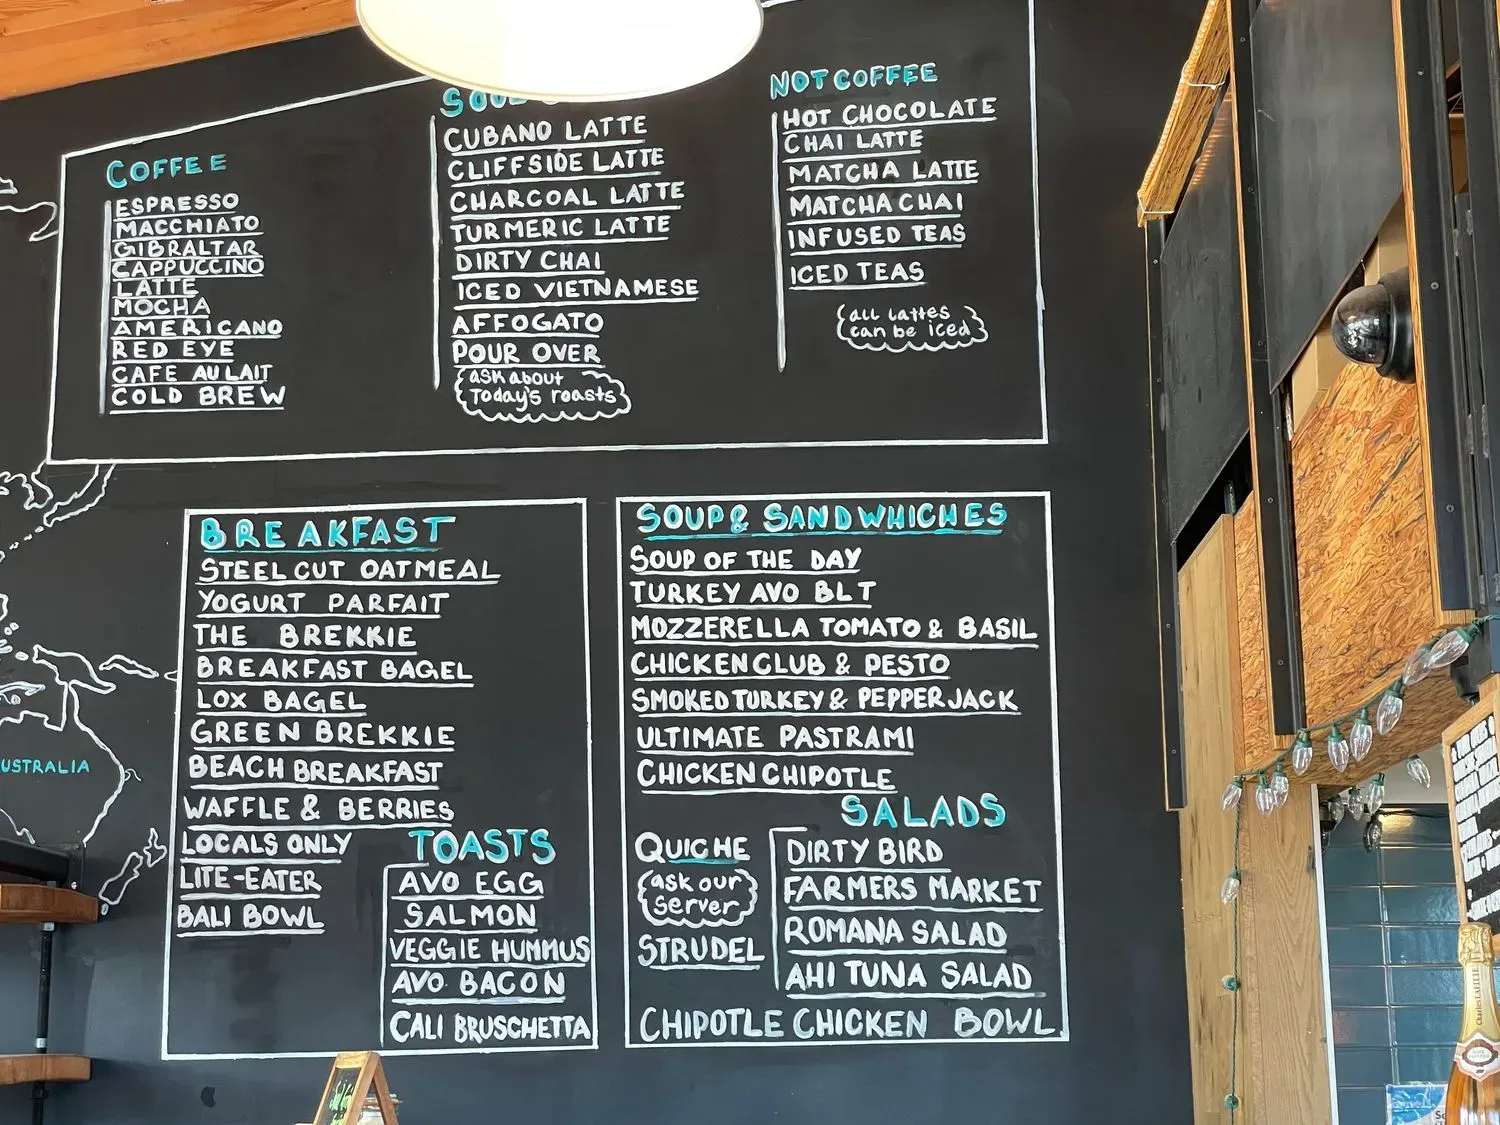 COFFEE
ESPRESSO
MACCHIATO
GIBRALTAR
CAPPUCCINO
LATTE
MOCHA
AMERICANO
RED EYE
CAFE AU LAIT
COLD BREW
CUBANO LATTE
CLIFFSIDE LATTE
CHARCOAL LATTE
TURMERIC LATTE
DIRTY CHAI
ICED VIETNAMESE
AFFOGATO
POUR OVER
ask about
Today's roasts
NOT COFFEE
HOT CHOCOLATE
CHAI LATTE
MATCHA LATTE
MATCHA CHAI
INFUSED TEAS
ICED TEAS
all lattes
can be iced
BREAKFAST
STEEL CUT OATMEAL
YOGURT PARFAIT
THE BREKKIE
BREAKFAST BAGEL
LOX BAGEL
GREEN BREKKIE
BEACH BREAKFAST
WAFFLE & BERRIES
LOCALS ONLY
LITE-EATER
BALI BOWL
TOASTS
AVO EGG
SALMON
VEGGIE HUMMUS
AVO BACON
CALI BRUSCHETTA
SOUP & SANDWHICHES
SOUP OF THE DAY
TURKEY AVO BLT
MOZZERELLA TOMATO & BASIL
CHICKEN CLUB & PESTO
SMOKED TURKEY & PEPPER JACK
ULTIMATE PASTRAMI
CHICKEN CHIPOTLE
QUICHE
(ask our
server)
STRUDEL
SALADS
DIRTY BIRD
FARMERS MARKET
ROMANA SALAD
AHI TUNA SALAD
CHIPOTLE CHICKEN BOWL
USTRALIA
Charles LAFITTE